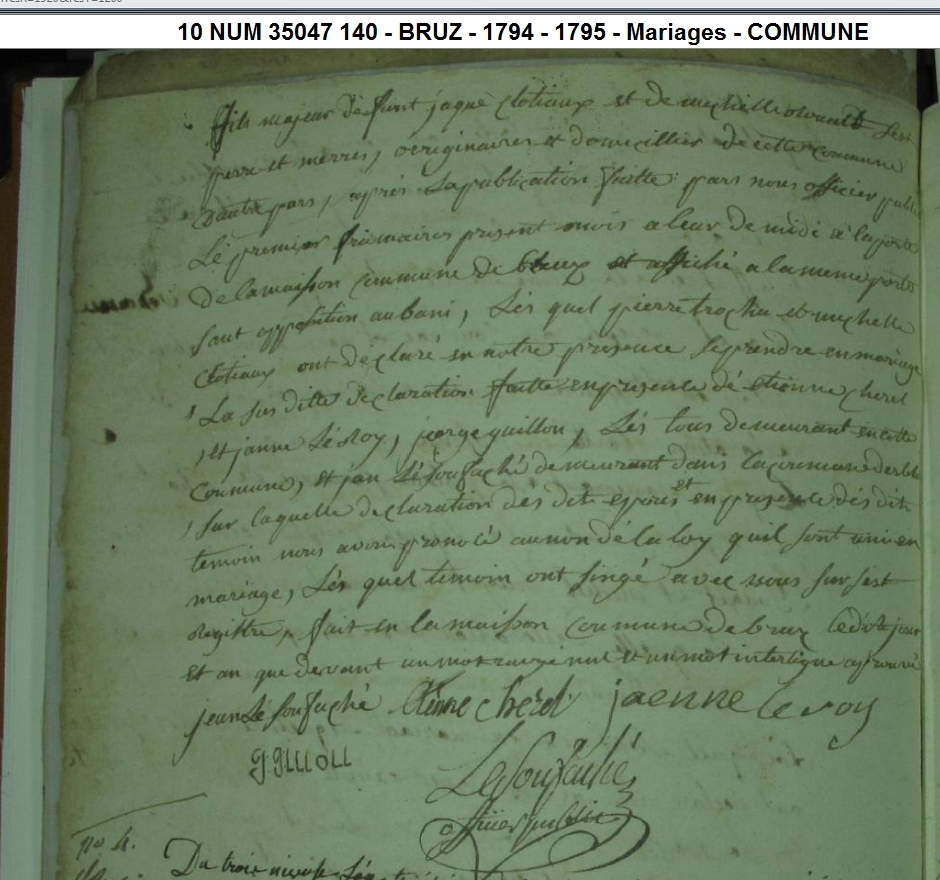 10 NUM 35047 140 - BRUZ - 1794 - 1795 - Mariages - COMMUNE
fils majeur de funt jaque Clotiaux et de michelle ses
perre et merres, origginaires et domicillier de cette commune
dautre pars, aprés La publication faitte pars nous officier publi
Le premier frimaires present mois a leur de midi à la porte
de la maison commune de bruz et affiché a la meme porte
saut opposition au bani, Lés quel pierre trochu et michelle
Clotiaux ont déclaré en notre presence se prendre en mariage
La sus ditte déclaration faitte en presence dé etienne cherel
, et janne Lé Roy, jorge guillon, Lés tous demeurant en cette
Commune, et jan Lé foufaché demeurant dans la commune
, sur laquelle déclaration dés dit epouis et en presence dés dit
temoin nous avon prononcé au non dé la loy quil sont uni en
mariage, Lés quel temoin ont singé avec nous sur
Regittre, fait en la maison commune de bruz le dit jour
et an que devant un mot rayé nul et un mot interligne aprouvé
jean Lé foufaché Etienne cherel jaenne le roy
g. gllioll
Lefoufaché
officier public
no 4.
Du trois nivose